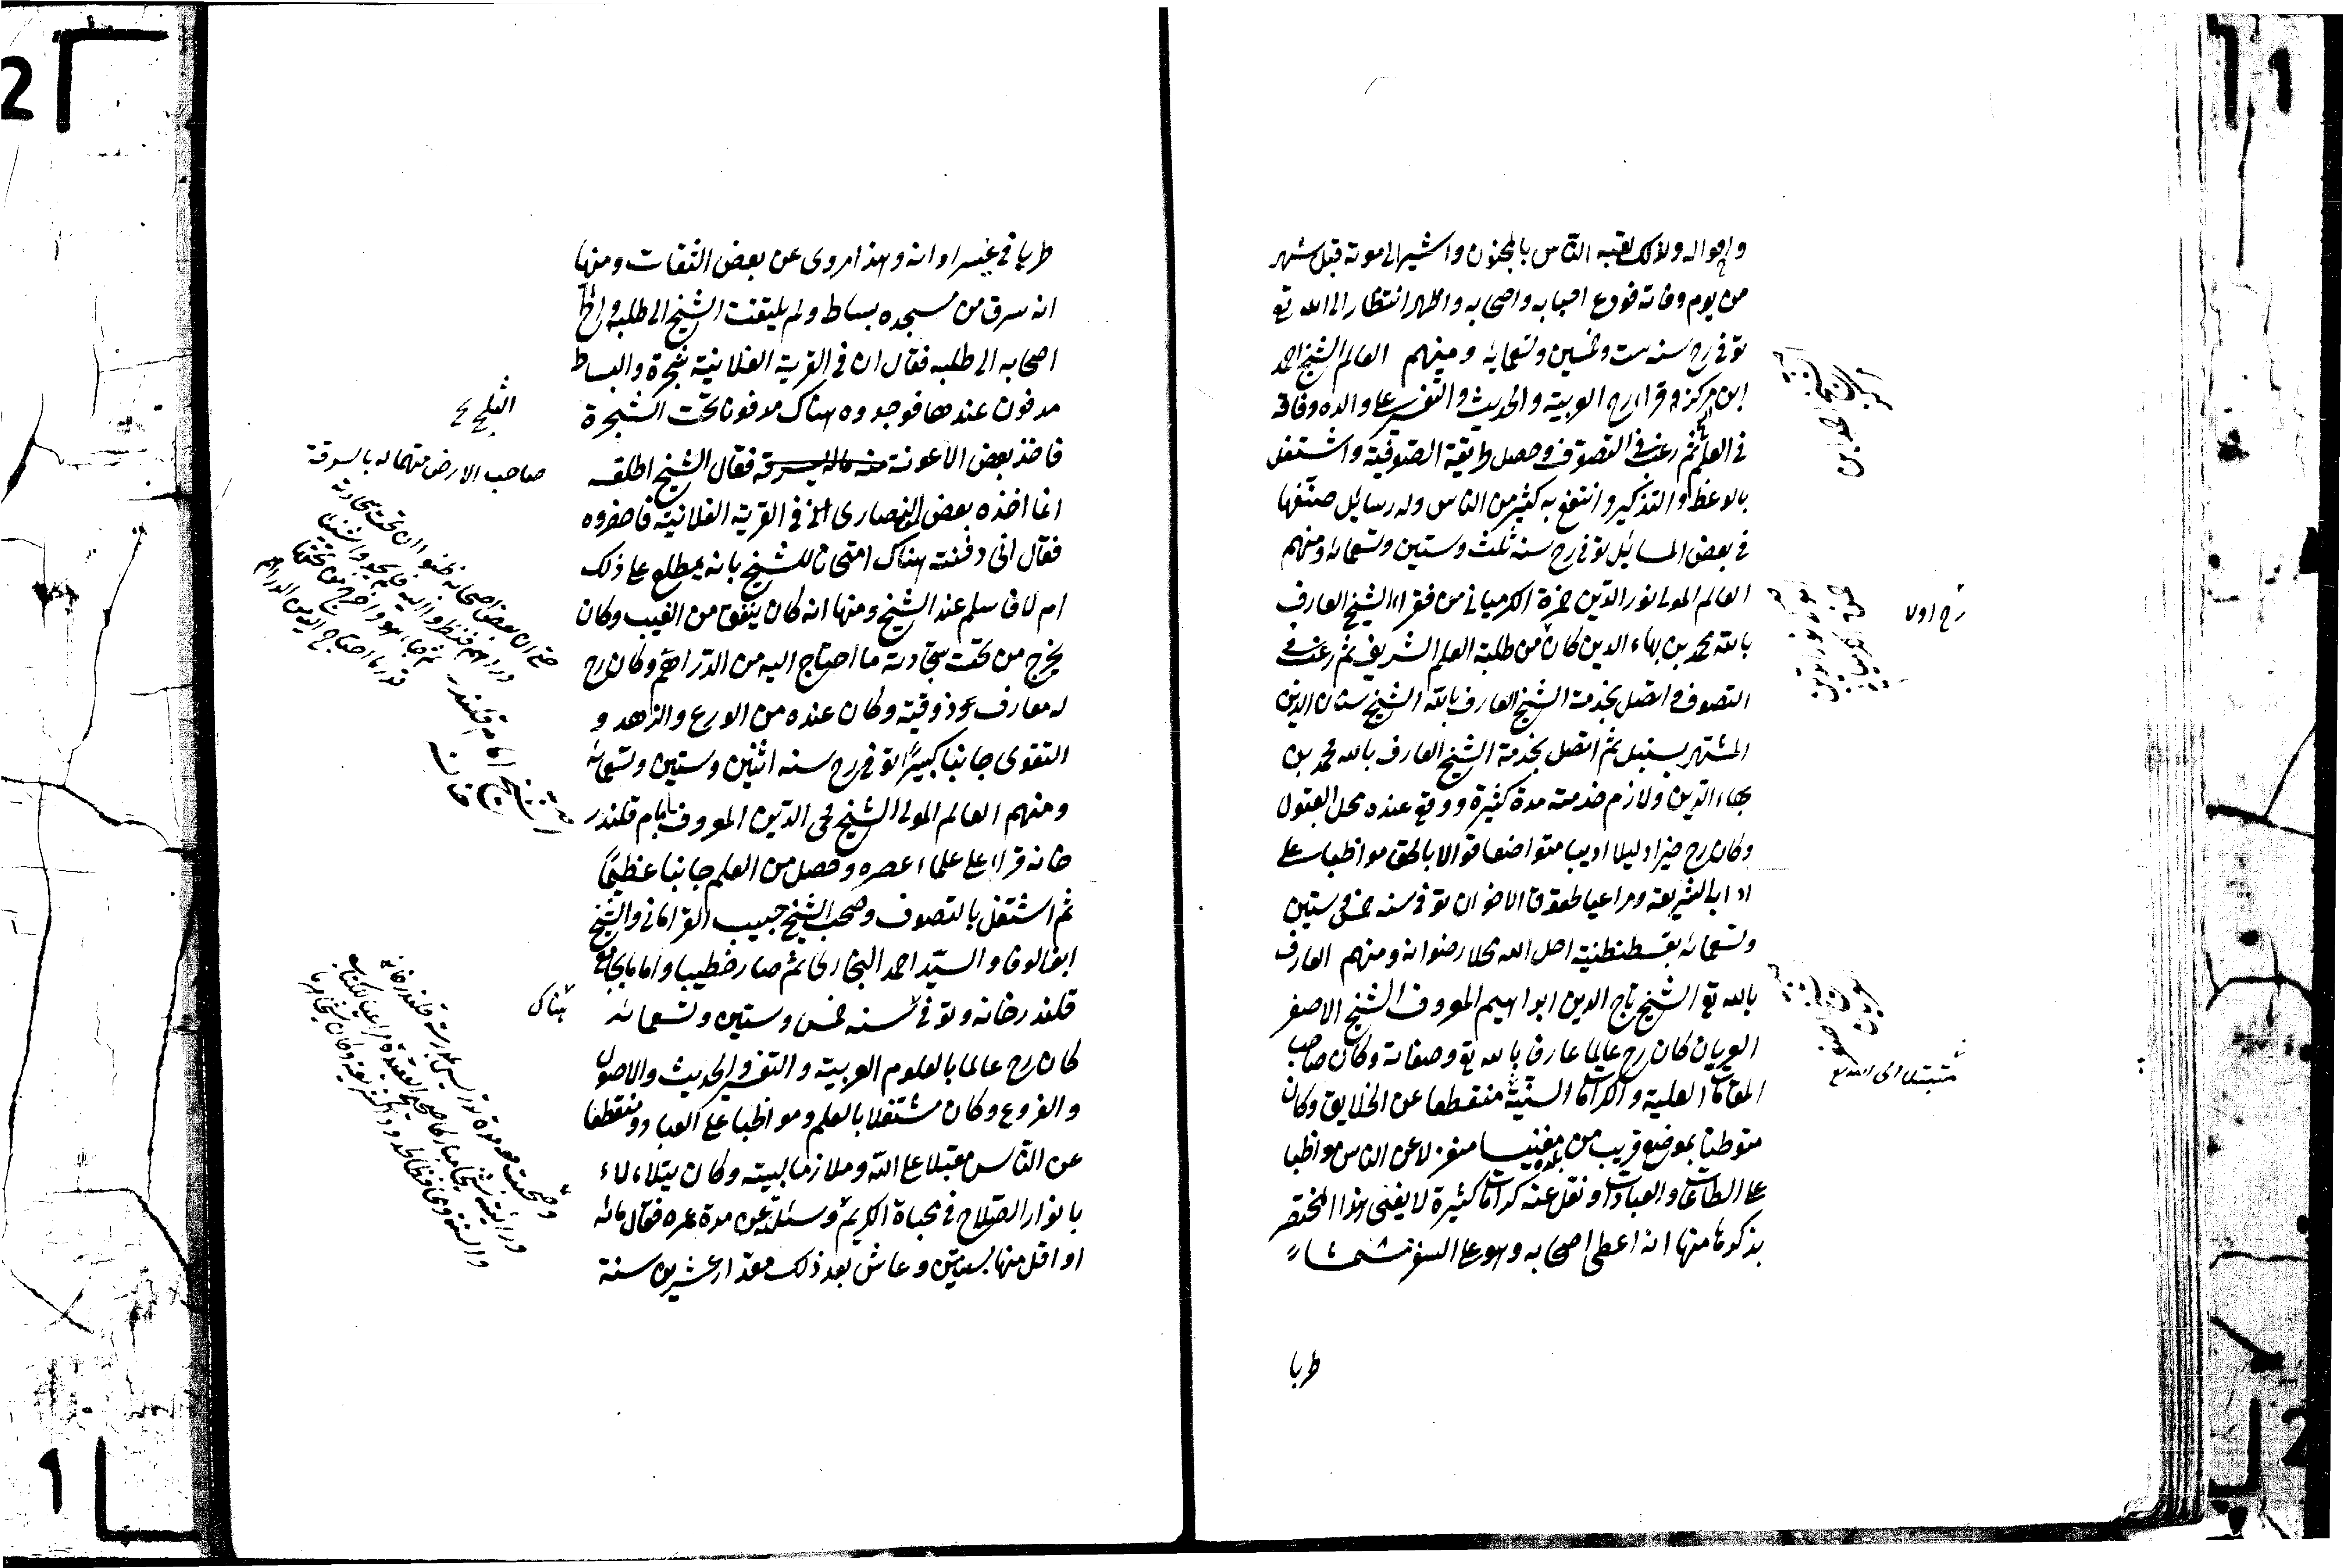 واحواله ولذلك لقبه الناس بالمجنون واشير الى موته قبل شهر
من يوم وفاته فودع احبابه واصحابه واظهر انتظارا الى الله تع
توفى رح سنه ست وخمسين وتسعمايه ومنهم العالم الشيخ احمد
ابن مركز قراء رح العربية والحديث والتفسير على والده وفاق
فى العلم ثم رغب فى التصوف وحصل طريقة الصوفية واشتغل
بالوعظ والتذكير وانتفع به كثير من الناس وله رسايل صنفها
فى بعض المسائل توفى رح سنه ثلث وستين وتسعمائه ومنهم
العالم المولى نور الدين حمزة الكرميانى من فقراء الشيخ العارف
بالله محمد بن بهاء الدين كان من طلبة العلم الشريف ثم رغب فى
التصوف واتصل بخدمة الشيخ العارف بالله الشيخ سنان الدين
المشتهر بسنبل ثم اتصل بخدمة الشيخ العارف بالله محمد بن
بهاء الدين ولازم خدمته مدة كثيرة ووقع عنده محل القبول
وكان رح خيرا دليلا اديبا متواضعا قوالا بالحق مواظبا على
اداب الشريعة ومراعيا لحقوق الاخوان توفى سنه خمس وستين
وتسعمائه بقسطنطنية احل الله محلا رضوانه ومنهم العارف
بالله تع الشيخ تاج الدين ابراهيم المعروف الشيخ الاصغر
العريان كان رح عالما عارفا بالله تع وصفاته وكان صاحب
المقامات العلية والكرامات السنية منقطعا عن الخلايق وكان
متوطنا بموضع قريب من بلده مغنيسا منعزلا عن الناس مواظبا
على الطاعات والعبادات ونقل عنه كرامات كثيرة لا يفى هذا المختصر
بذكرها منها انه اعطى اصحابه وهو على السفر مشمشا
طريا
رح اولا
متبتلا الى الله تع
طريا فى غير اوانه وهذا مروى عن بعض الثقات ومنها
انه سرق من مسجده بساط ولم يلتفت الشيخ الى طلبه والح
اصحابه الى طلبه فقال ان فى القرية الفلانية شجرة والبساط
مدفون عندها فوجدوه هناك مدفونا تحت الشجرة
فاخذ بعض الاعونة فقال الشيخ اطلقه
انما اخذه بعض النصارى فى القرية الفلانية فاحضروه
فقال انى دفنته هناك امتحانا للشيخ بانه يطلع على ذلك
ام لا فاسلم عند الشيخ ومنها انه كان ينفق من الغيب وكان
يخرج من تحت سجادته ما احتاج اليه من الدراهم وكان رح
له معارف ذوقية وكان عنده من الورع والزهد و
التقوى جانبا كبيرا توفى رح سنه اثنين وستين وتسعمائه
ومنهم العالم المولى الشيخ محى الدين المعروف بامام قلندر
خانه قراء على علماء عصره وحصل من العلم جانبا عظيما
ثم اشتغل بالتصوف وصحب الشيخ حبيب القرامانى والشيخ
ابن الوفا والسيد احمد البخارى ثم صار خطيبا واماما بجامع
قلندر خانه وتوفى سنه خمس وستين وتسعمائه
كان رح عالما بالعلوم العربية والتفسير والحديث والاصول
والفروع وكان مشتغلا بالعلم ومواظبا على العباد ومنقطعا
عن الناس مقبلا على الله وملازما لبيته وكان يتلاءلاء
بانوار الصلاح فى محياه الكريم وسئلته عن مدة عمره فقال مائه
او اقل منها بسنتين وعاش بعد ذلك مقدار عشرين سنة
صاحب الارض متهما له بالسرقة
حتى ان بعض اصحابه ظنوا ان تحت سجادته
دراهم فنظروا اليه فلم يجدوا شيئا
ثم جاء هو واخرج من تحتها
قدر ما احتاج اليه من الدراهم
هناك